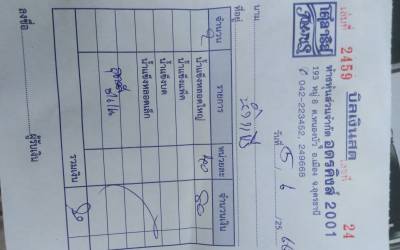 เล่มที่ 2459
บิลเงินสด
เลขที่ 24
ห้างหุ้นส่วนจำกัด อุดรคิงส์ 2001
193 หมู่ 8 ต.หนองบัว อ.เมือง จ.อุดรธานี
042-223452, 249668
วันที่ 5 / 6 / 25 66
นาม
ที่อยู่
จำนวน รายการ หน่วยละ จำนวนเงิน
2 น้ำแข็งหลอดใหญ่ 40 80
น้ำแข็งแพ็ค
น้ำแข็งบด
น้ำแข็งหลอดเล็ก
รวมเงิน 80
ลงชื่อ ผู้รับเงิน